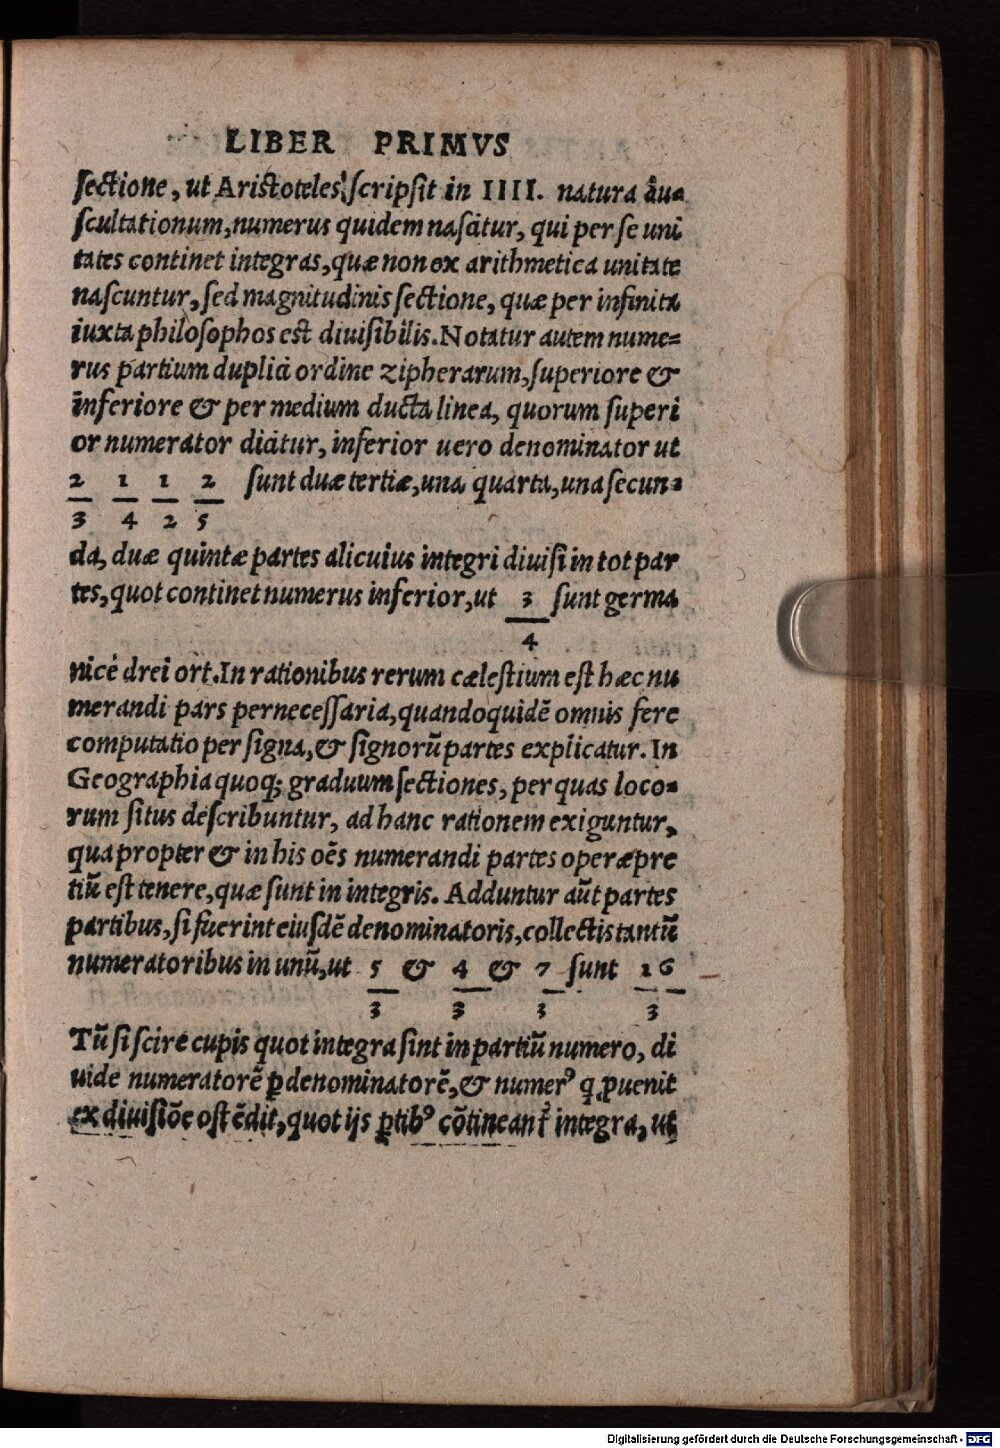 LIBER PRIMVS
sectione, ut Aristoteles scripsit in IIII. natura au-
scultationum, numerus quidem nascitur, qui per se uni
tates continet integras, quæ non ex arithmetica unitate
nascuntur, sed magnitudinis sectione, quæ per infinita
iuxta philosophos est diuisibilis. Notatur autem nume=
rus partium duplici ordine zipherarum, superiore &
inferiore & per medium ducta linea, quorum superi
or numerator dicitur, inferior uero denominator ut
2/3 1/4 1/2 2/5 sunt duæ tertiæ, una quarta, una secun-
da, duæ quintæ partes alicuius integri diuisi in tot par
tes, quot continet numerus inferior, ut 3/4 sunt germa
nicè drei ort. In rationibus rerum cælestium est hæc nu
merandi pars pernecessaria, quandoquidē omnis fere
computatio per signa, & signorū partes explicatur. In
Geographia quoq; graduum sectiones, per quas loco-
rum situs describuntur, ad hanc rationem exiguntur,
quapropter & in his oēs numerandi partes operæpre
tiū est tenere, quæ sunt in integris. Adduntur aūt partes
partibus, si fuerint eiusdē denominatoris, collectis tantū
numeratoribus in unū, ut 5/3 & 4/3 & 7/3 sunt 16/3
Tū si scire cupis quot integra sint in partiū numero, di
uide numeratorē ꝑ denominatorē, & numerꝰ q ꝓuenit
ex diuisiōe ostēdit, quot ijs ꝑtibꝰ cōtineant᷑ integra, ut
Digitalisierung gefördert durch die Deutsche Forschungsgemeinschaft - DFG